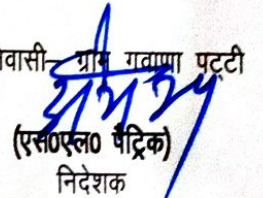 वासी– ग्राम गवाणा पट्टी
(एस०एल० पैट्रिक)
निदेशक